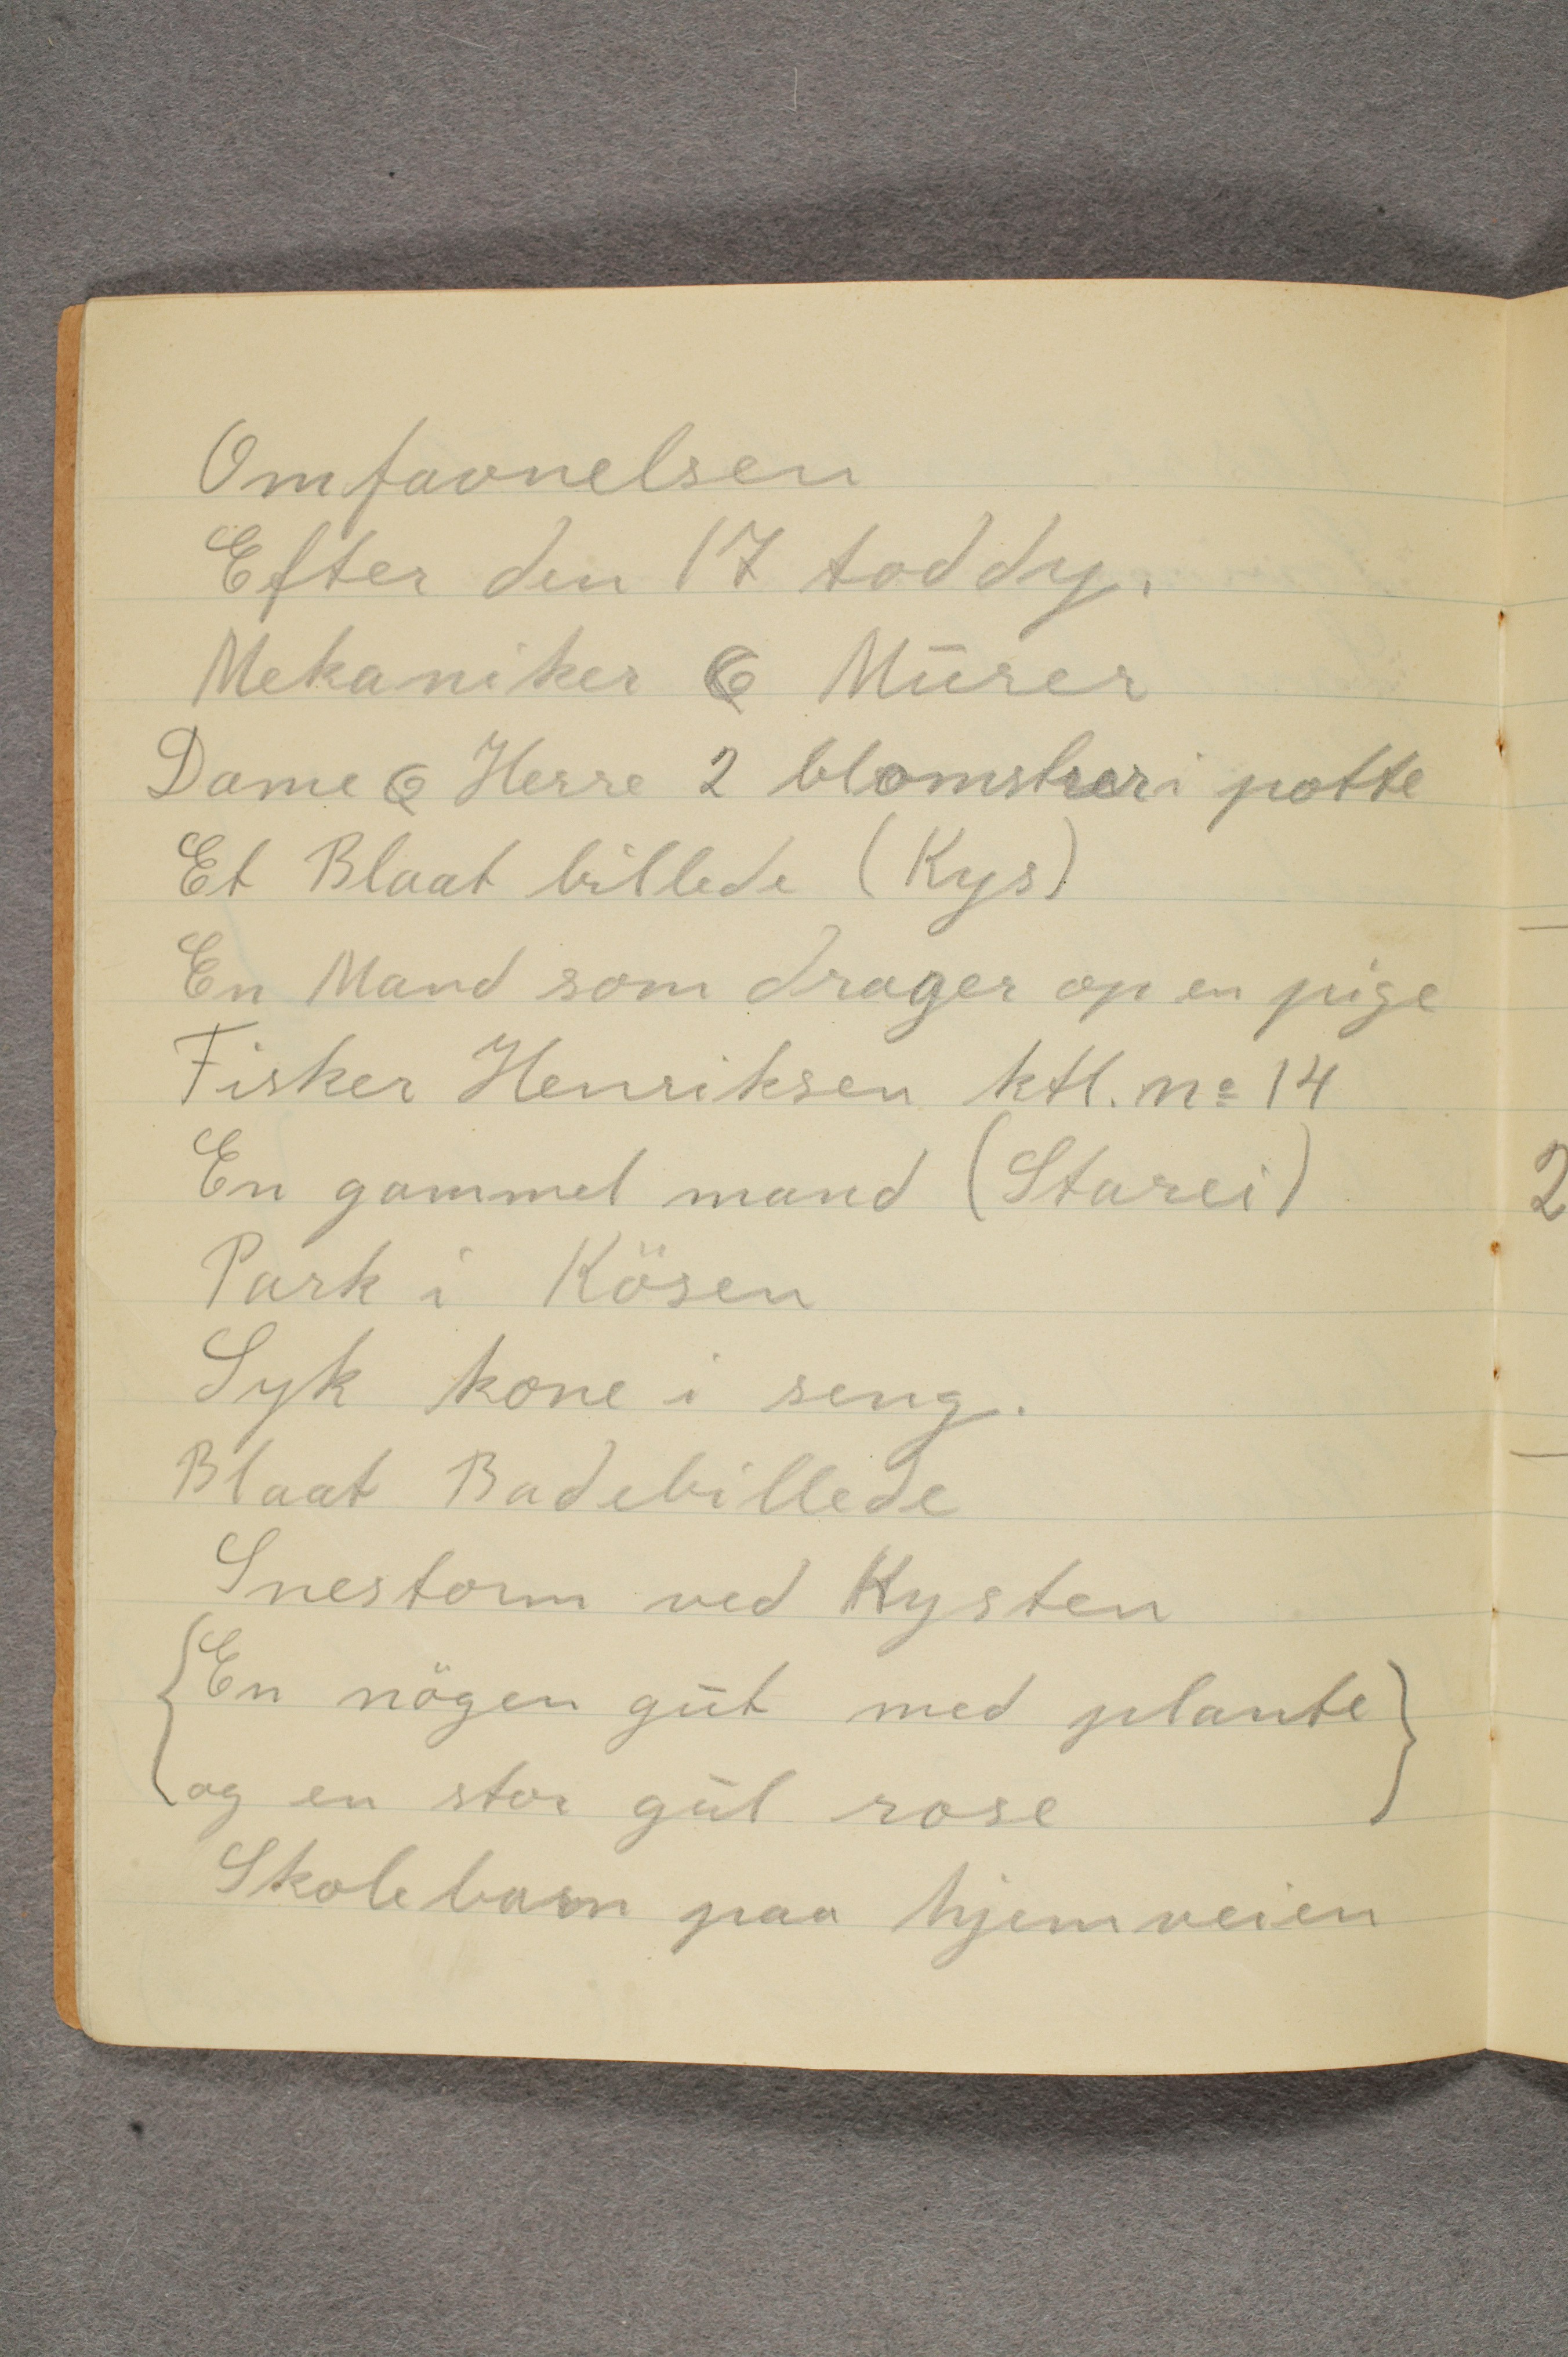 Omfavnelsen
Efter den 17 toddy.
Mekaniker & Mūrer
Dame & Herre 2 blomstrer i potte
Et Blaat billede (Kys)
En Mand som drager op en pige
Fisker Henriksen ktl. No 14
En gammel mand (Starei)
2
Park i Kösen
Syk kone i seng.
Blaat Badebillede
Snestorm ved Kysten
{En nögen gūt med plante}
og en stor gūl rose
Skolebarn paa hjemveien